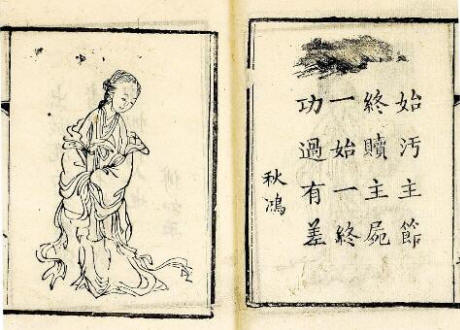 始汚主節
終贖主屍
一始一終
功過有差
秋鴻